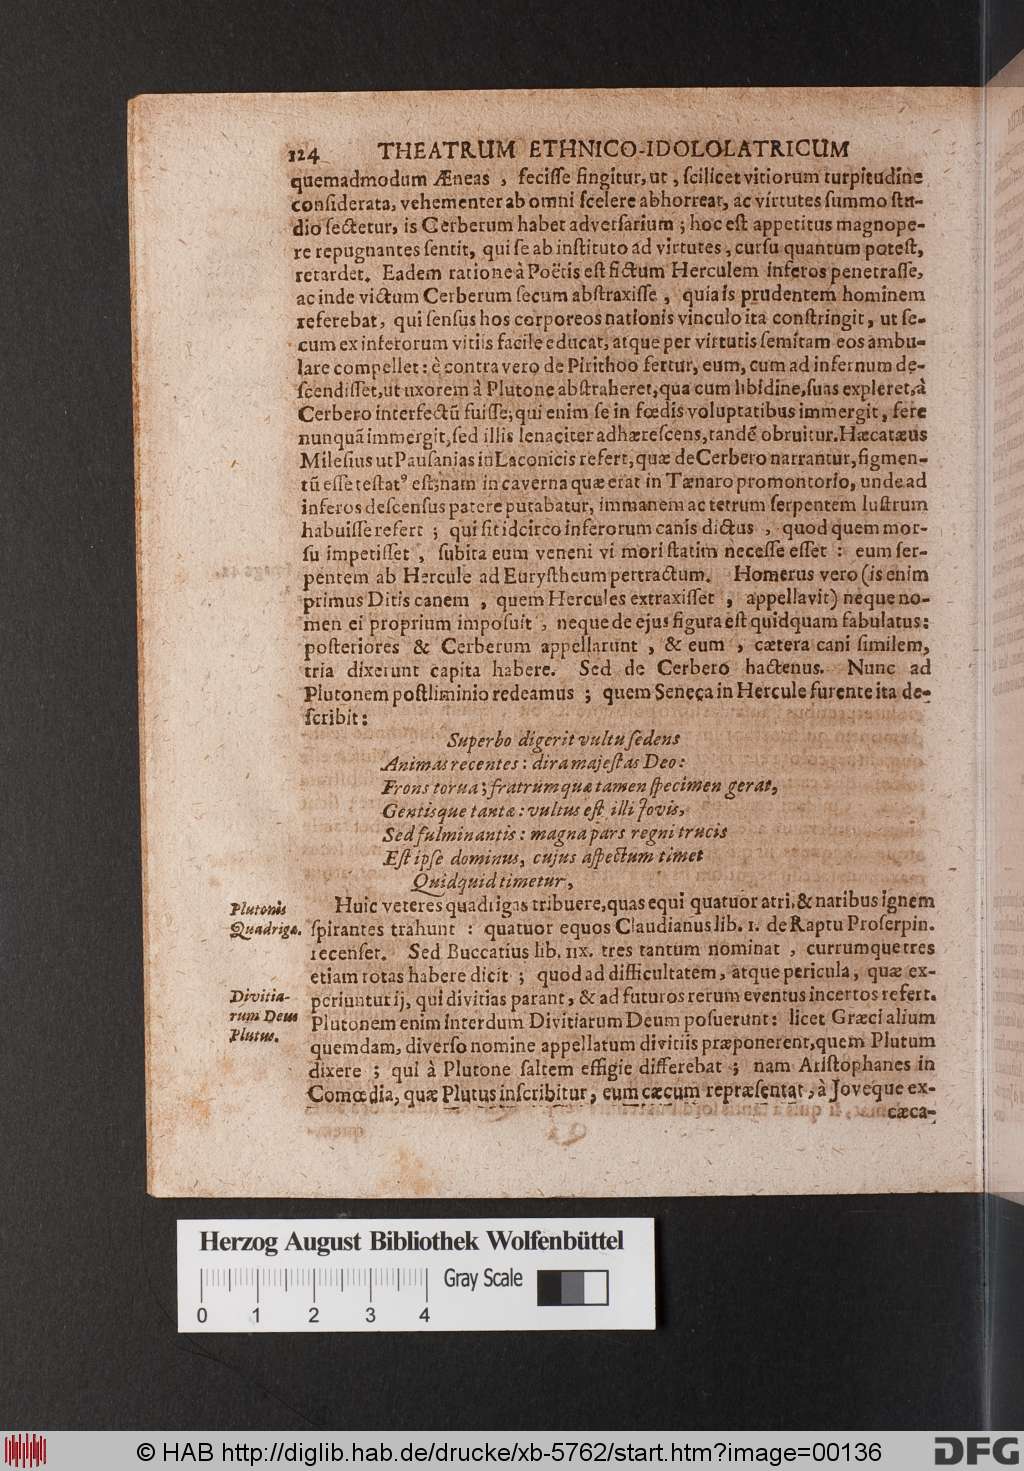 124 THEATRUM ETHNICO-IDOLOLATRICUM
quemadmodum Æneas , feciſſe fingitur, ut , ſcilicet vitiorum turpitudine
conſiderata, vehementer ab omni ſcelere abhorreat, ac virtutes ſummo ſtu-
dio ſectetur, is Cerberum habet adverſarium ; hoc eſt appetitus magnope-
re repugnantes ſentit, qui ſe ab inſtituto ad virtutes , curſu quantum poteſt,
retardet. Eadem ratione à Poëtis eſt fictum Herculem inferos penetraſſe,
ac inde victum Cerberum ſecum abſtraxiſſe , quia is prudentem hominem
referebat, qui ſenſus hos corporeos nationis vinculo ita conſtringit, ut ſe-
cum ex inferorum vitiis facile educat, atque per virtutis ſemitam eos ambu-
lare compellet : è contra vero de Pirithoo fertur, eum, cum ad infernum de-
ſcendiſſet, ut uxorem à Plutone abſtraheret, qua cum libidine, ſuas expleret, à
Cerbero interfectū fuiſſe; qui enim ſe in fœdis voluptatibus immergit, fere
nunquā immergit, ſed illis lenaciter adhæreſcens, tandē obruitur. Hæcatæus
Mileſius ut Pauſanias in Laconicis refert, quæ de Cerbero narrantur, figmen-
tū eſſe teſtatꝰ eſt; nam in caverna quæ erat in Tænaro promontorio, unde ad
inferos deſcenſus patere putabatur, immanem ac tetrum ſerpentem luſtrum
habuiſſe refert ; qui ſit idcirco inferorum canis dictus , quod quem mor-
ſu impetiſſet , ſubita eum veneni vi mori ſtatim neceſſe eſſet : eum ſer-
pentem ab Hercule ad Euryſtheum pertractum. Homerus vero (is enim
primus Ditis canem , quem Hercules extraxiſſet , appellavit) neque no-
men ei proprium impoſuit , neque de ejus figura eſt quidquam fabulatus:
poſteriores & Cerberum appellarunt , & eum , cætera cani ſimilem,
tria dixerunt capita habere. Sed de Cerbero hactenus. Nunc ad
Plutonem poſtliminio redeamus ; quem Seneca in Hercule furente ita de-
ſcribit:
Superbo digerit vultu ſedens
Animas recentes : dira majeſtas Deo:
Frons torua; fratrum quæ tamen ſpecimen gerat,
Gentisque tantæ : vultus eſt illi Jovis,
Sed fulminantis : magna pars regni trucis
Eſt ipſe dominus, cujus aſpectum timet
Quidquid timetur,
Huic veteres quadrigas tribuere, quas equi quatuor atri, & naribus ignem
ſpirantes trahunt : quatuor equos Claudianus lib. 1. de Raptu Proſerpin.
recenſet. Sed Buccatius lib. IIX. tres tantum nominat , currumque tres
etiam rotas habere dicit ; quod ad difficultatem, atque pericula, quæ ex-
periuntur ij, qui divitias parant, & ad futuros rerum eventus incertos refert.
Plutonem enim interdum Divitiarum Deum poſuerunt: licet Græci alium
quemdam, diverſo nomine appellatum divitiis præponerent, quem Plutum
dixere ; qui à Plutone ſaltem effigie differebat ; nam Ariſtophanes in
Comœdia, quæ Plutus inſcribitur, eum cæcum repræſentat, à Joveque ex-
cæca-
Plutonis
Quadriga.
Divitia-
rum Deus
Plutus.
Herzog August Bibliothek Wolfenbüttel
Gray Scale
0 1 2 3 4
© HAB http://diglib.hab.de/drucke/xb-5762/start.htm?image=00136
DFG